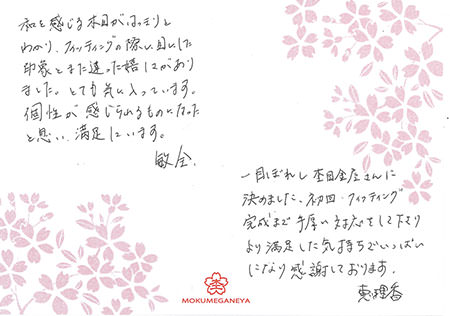 和を感じる木目がはっきりと
わかり、フィッティングの際に目にした
印象とまた違った揺らぎがあり
ました。とても気に入っています。
個性が感じられるものになった
と思い、満足しています。
敏全.
一目ぼれし杢目金屋さんに
決めました。初回・フィッティング
完成まで手厚い対応をして下さり
より満足した気持ちでいっぱい
になり感謝しております。
恵理香
MOKUMEGANEYA